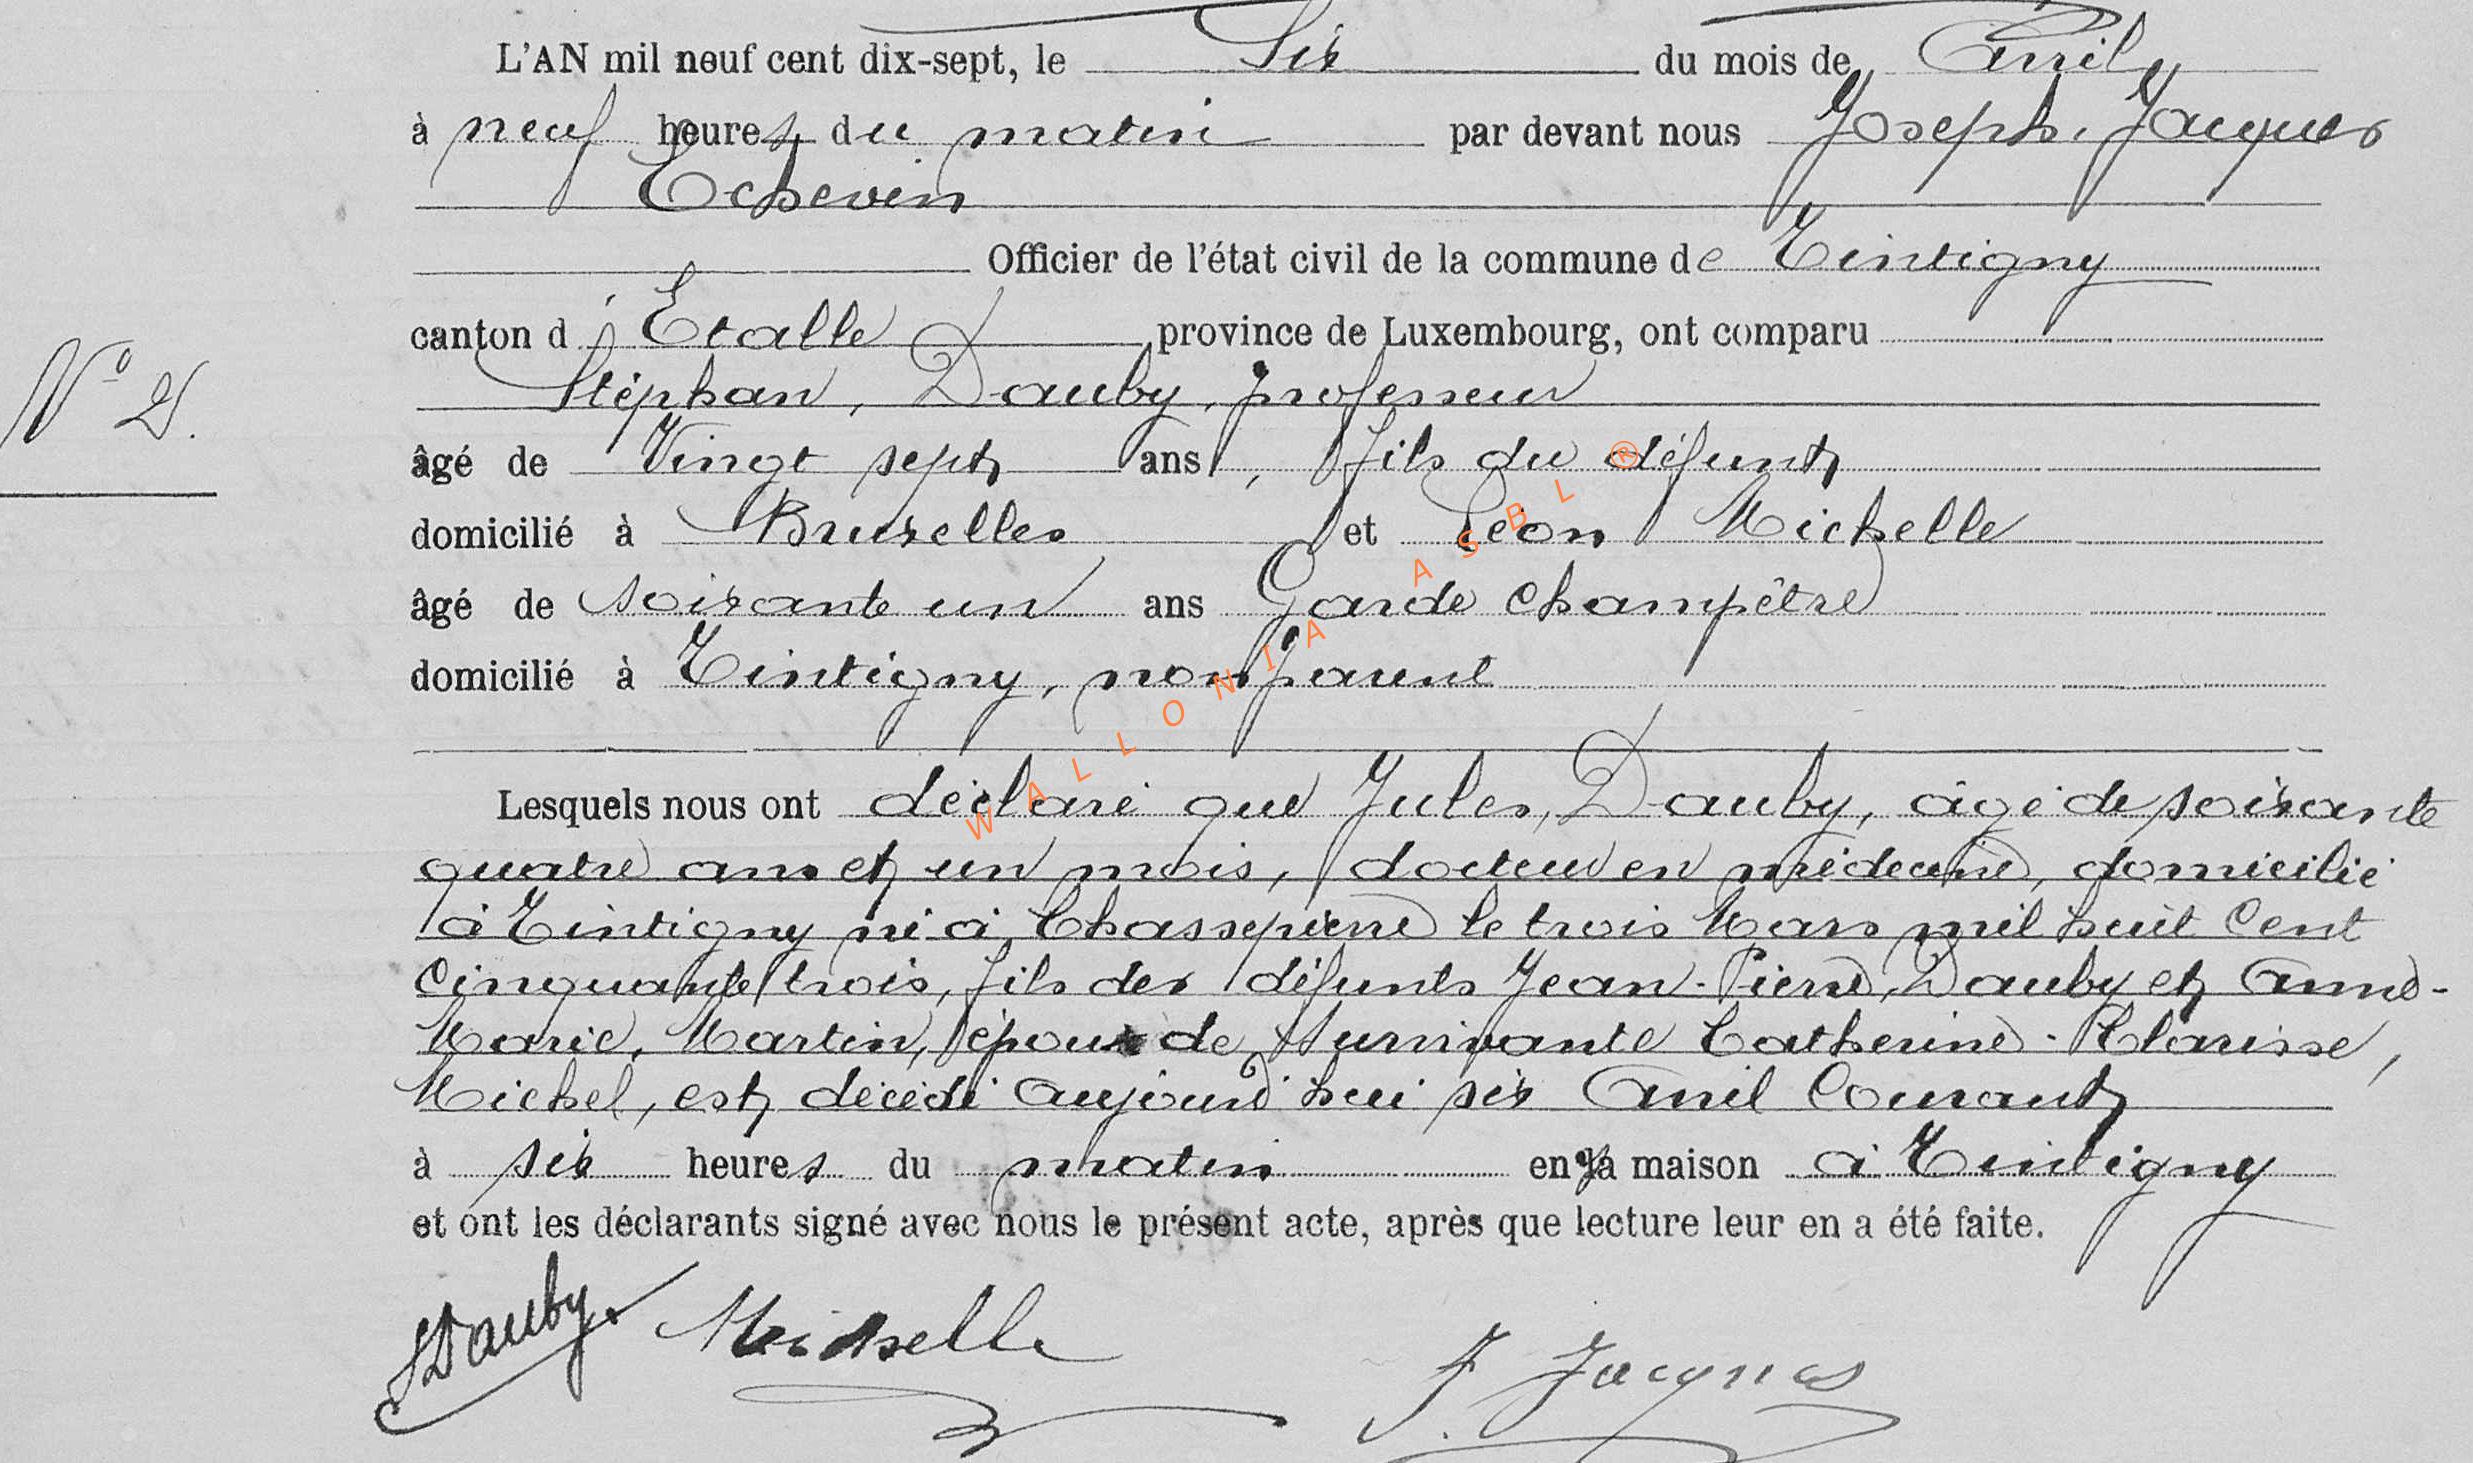 L'AN mil neuf cent dix-sept, le Six du mois de Avril
à neuf heures du matin par devant nous Joseph, Jacques
Echevin
Officier de l'état civil de la commune de Tintigny
canton d'Etalle province de Luxembourg, ont comparu
Stéphan, Dauby, professeur
N° 2.
âgé de Vingt sept ans, fils du défunt
domicilié à Bruxelles et Léon Michelle
âgé de soixante un ans Garde champêtre
domicilié à Tintigny, non parent
Lesquels nous ont déclaré que Jules, Dauby, âgé de soixante
quatre ans et un mois, docteur en médecine, domicilié
à Tintigny né à Chassepierre le trois Mars mil huit Cent
Cinquante trois, fils des défunts Jean-Pierre, Dauby et Anne-
Marie, Martin, époux de survivante Catherine-Clarisse,
Michel, est décédé aujourd'hui six Avril Courant
à six heures du matin en sa maison à Tintigny
et ont les déclarants signé avec nous le présent acte, après que lecture leur en a été faite.
SDauby Michelle J. Jacques
WALLONIA ASBL ®